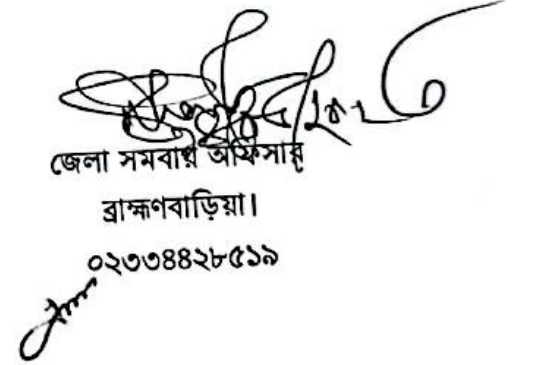 জেলা সমবায় অফিসার
ব্রাহ্মণবাড়িয়া।
০২৩৩৪৪২৮৫১৯